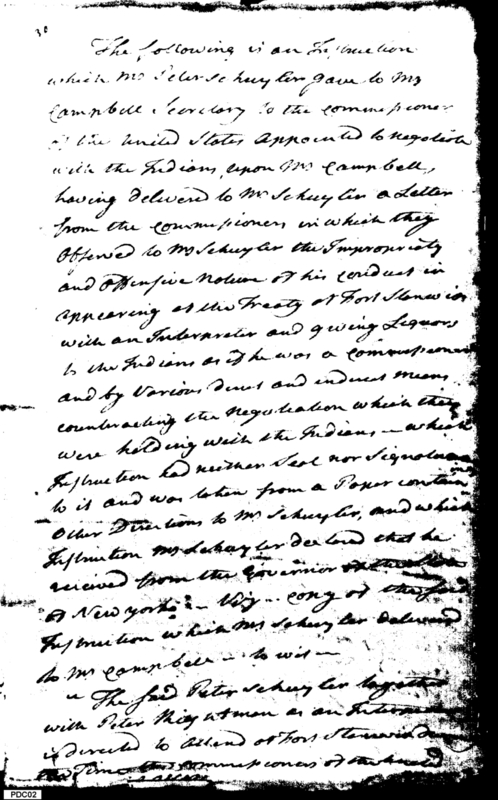 30
The following is an Instruction
which Mr Peter Schuyler gave to Mr
Campbell Secretary to the Commissioners
of the United States Appointed to negotiate
with the Indians, upon Mr Campbell,
having delivered to Mr Schuyler a Letter
from the Commissioners in which they
Observed to Mr Schuyler the Impropriety
and offensive Nature of his conduct in
appearing at the Treaty at Fort Stanwix
with an Interpreter and giving Liquors
to the Indians as if he was a Commissioner
and by various direct and indirect means
counteracting the Negotiation which they
were holding with the Indians – which
Instruction had neither Seal nor Signature
to it and was taken from a Paper containing
Other Directions to Mr Schuyler, and which
Instruction Mr Schuyler declared that he
received from the Governor
of New York – Viz – Copy of the said
Instruction which Mr Schuyler delivered
to Mr Campbell – to wit –
" The said Peter Schuyler together
with Peter as an Interpreter
is directed to Attend at Fort Stanwix
the Time the Commissioners of the United
PDC02